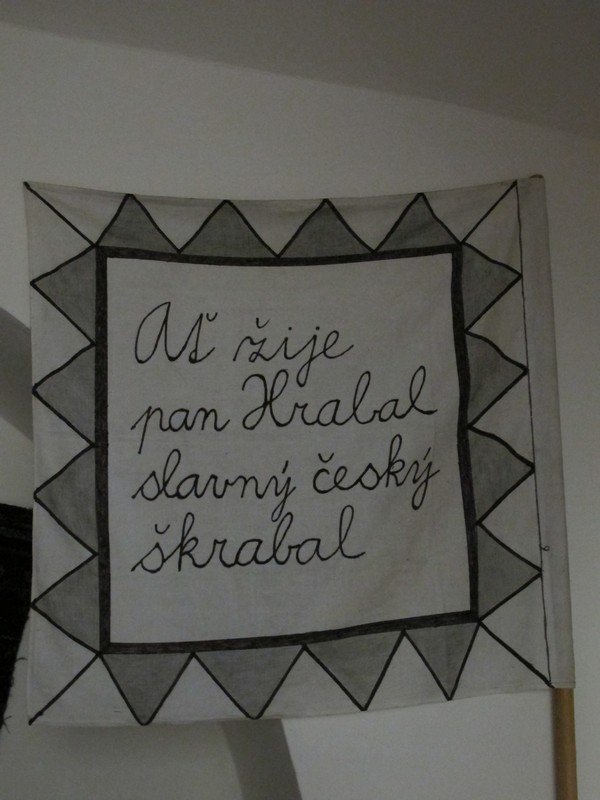 Ať žije
pan Hrabal
slavný český
škrabal